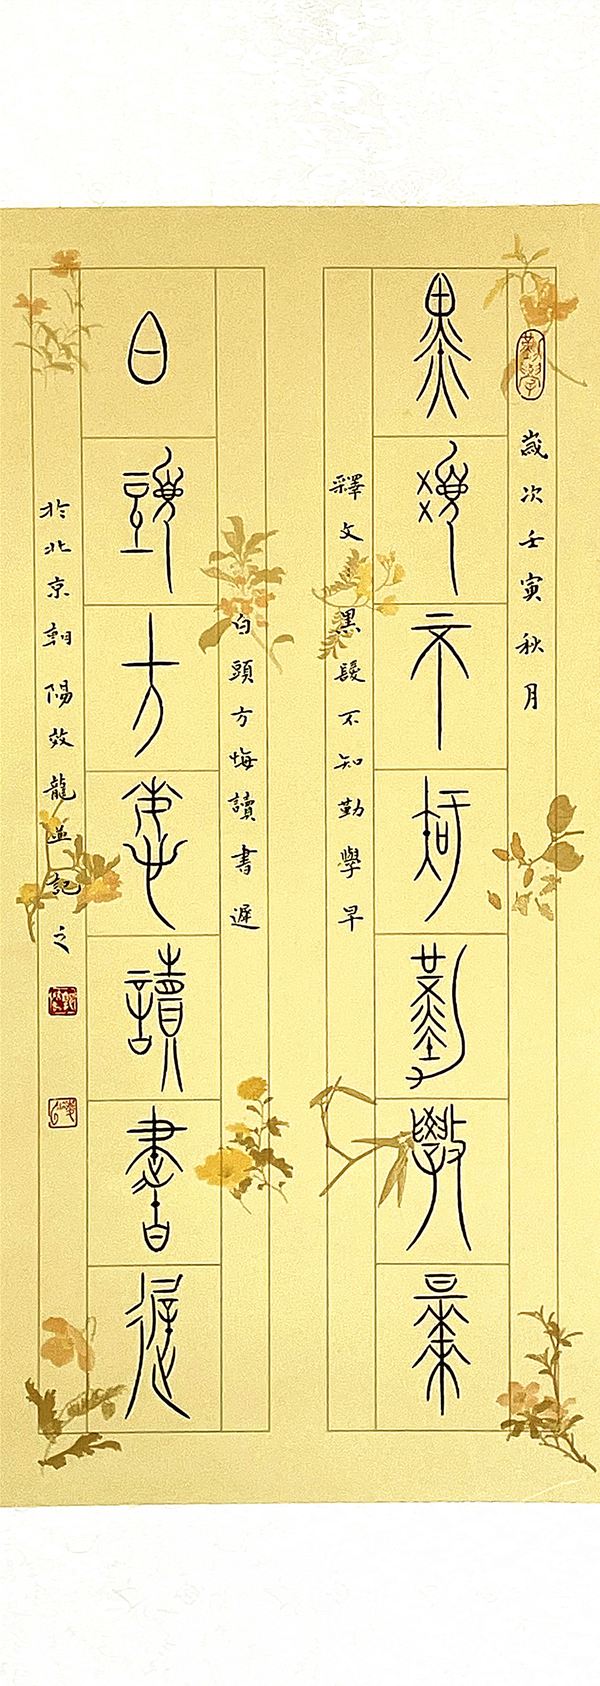 勤學
歲次壬寅秋月
黑髮不知勤學早
釋文 黑髮不知勤學早
白頭方悔讀書遲
白頭方悔讀書遲
於北京朝陽效龍並記之